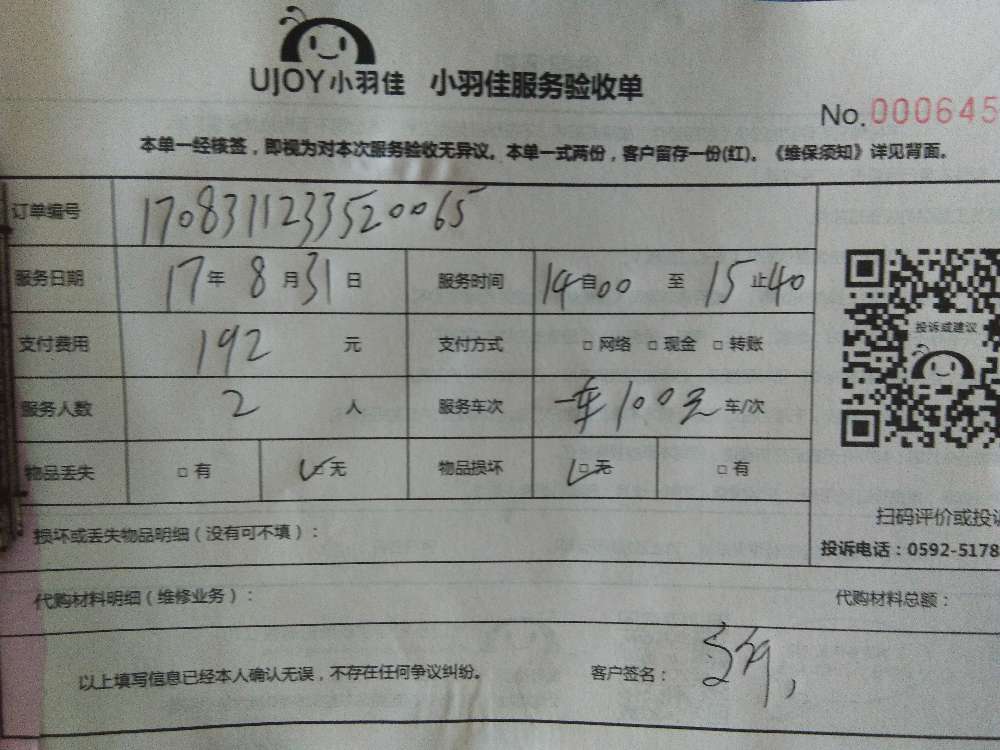 UJOY小羽佳 小羽佳服务验收单
No.000645
本单一经核签，即视为对本次服务验收无异议。本单一式两份，客户留存一份(红)。《维保须知》详见背面。
订单编号 1708311233520065
服务日期 17年 8月31日 服务时间 14自00 至 15止40
支付费用 192 元 支付方式 □ 网络 □ 现金 □ 转账
投诉或建议
服务人数 2 人 服务车次 一车100元 车/次
物品丢失 □ 有 □ 无 物品损坏 □ 无 □ 有
扫码评价或投诉
损坏或丢失物品明细（没有可不填）：
投诉电话：0592-5178
代购材料明细（维修业务）： 代购材料总额：
以上填写信息已经本人确认无误，不存在任何争议纠纷。 客户签名：